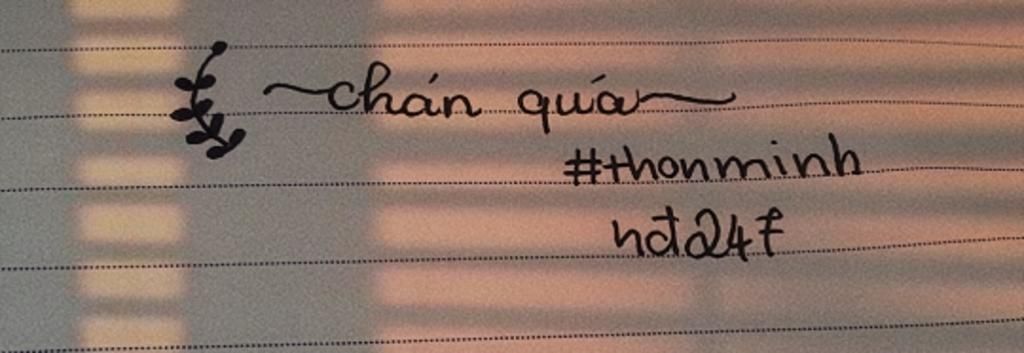 ~chán quá~
#thonminh
nđ247